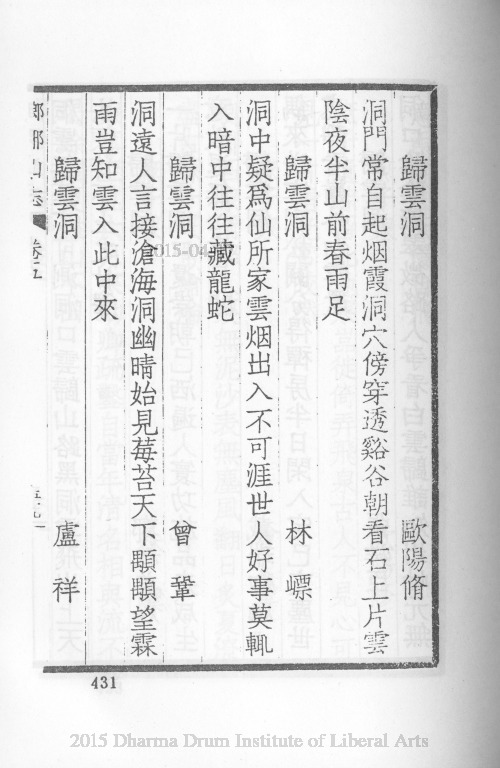 歸雲洞 歐陽脩
洞門常自起烟霞洞穴傍穿透谿谷朝看石上片雲
陰夜半山前春雨足
歸雲洞 林嘌
洞中疑爲仙所家雲烟出入不可涯世人好事莫輒
入暗中往往藏龍蛇
歸雲洞 曾鞏
洞遠人言接滄海洞幽晴始見莓苔天下顒顒望霖
雨豈知雲入此中來
歸雲洞 盧祥
山志 卷五
431
2015-04
2015 Dharma Drum Institute of Liberal Arts